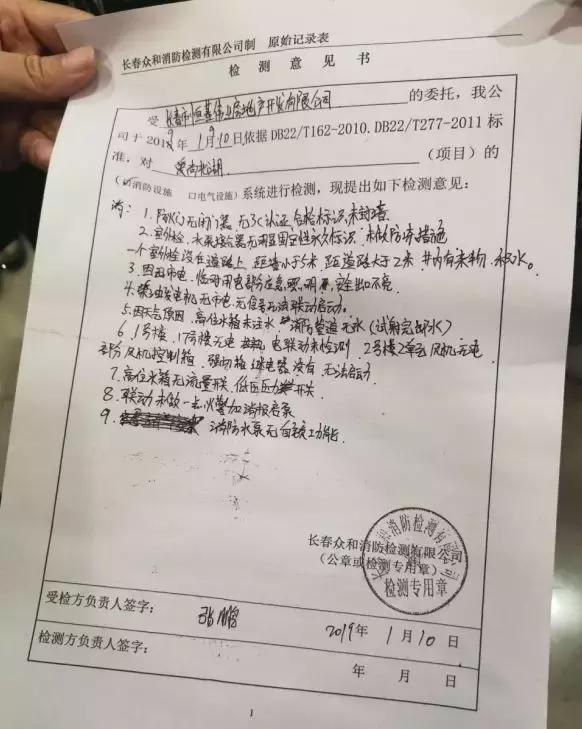 长春众和消防检测有限公司制 原始记录表
检测意见书
受 长春市恒基伟业房地产开发有限公司 的委托，我公
司于2019年1月10日依据DB22/T162-2010.DB22/T277-2011标
准，对 爱尚松湖 （项目）的
（消防设施 口电气设施）系统进行检测，现提出如下检测意见：
消：1.防火门无闭门器，无3C认证合格标识，未封堵
2.室外栓、水泵接合器无明显固定性永久标识，未做防冻措施
一个室外栓设在道路上，距墙小于5米，距道路大于2米，井内有杂物，永水。
3.因无市电，临时用电部分应急照明，安全出口不亮
4.柴油发电机无市电，无信号无法联动启动。
5.因天气原因，高位水箱未注水 消防管道无水（试射完却水）
6.1号楼、17号楼无电 电联动未检测，2号楼2单元风机无电
部分风机控制箱，强切箱，继电器没有，无法启动
7.高位水箱无流量开关，低压压力开关
8.联动未做一 火警加消报启泵
9. 消防水泵无自 功能
长春众和消防检测有限公司
（公章或检测专用章）
检测专用章
受检方负责人签字： 张鹏 2019年1月10日
检测方负责人签字： 年 月 日
1